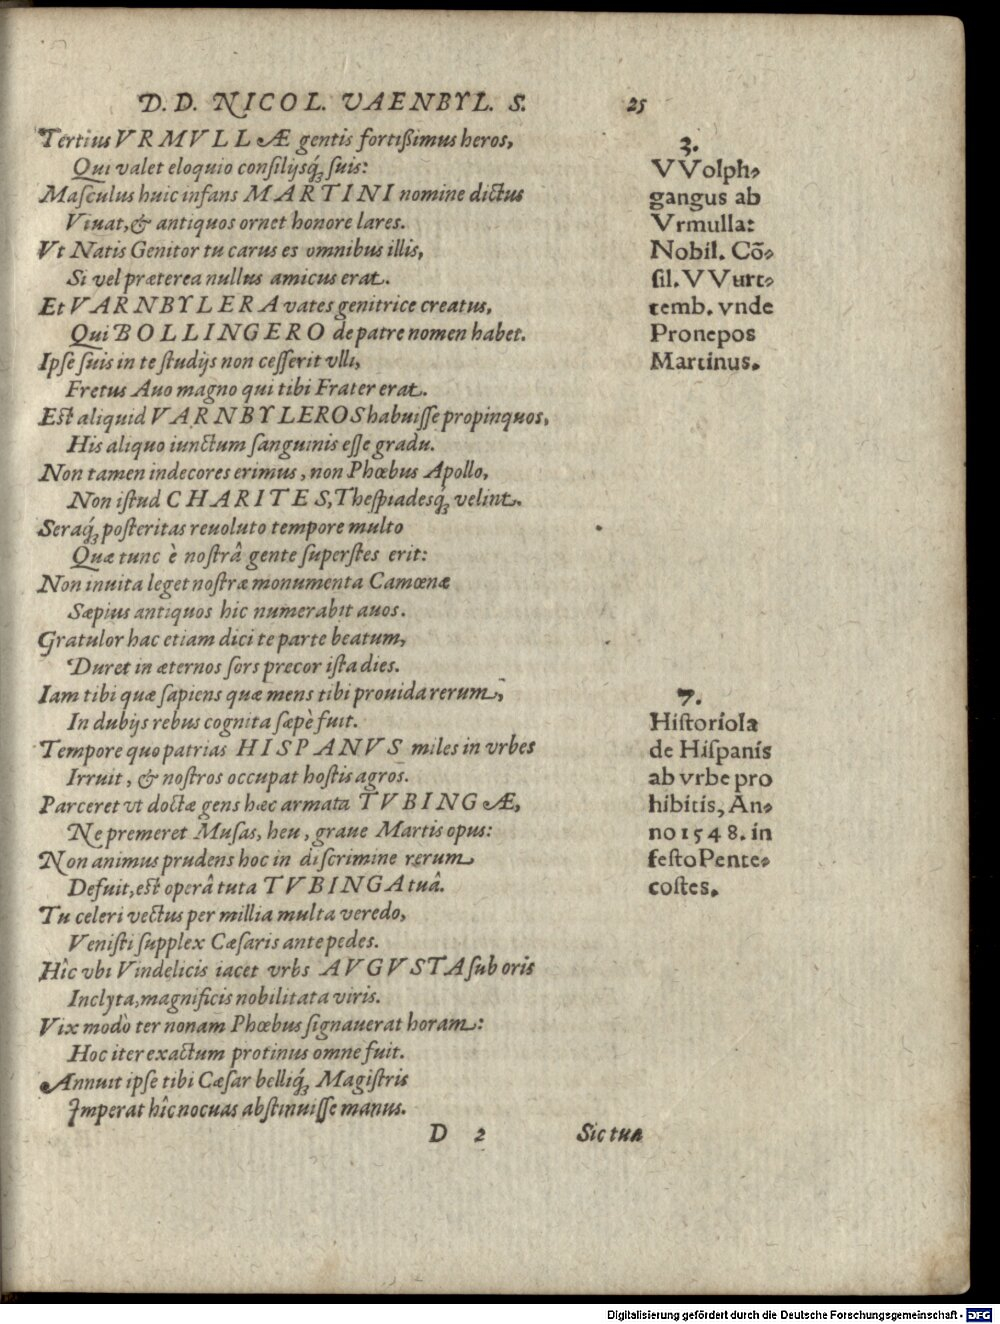 D. D. NICOL. VAENBYL. S. 25
Tertius VRMVLLÆ gentis fortißimus heros,
Qui valet eloquio consilijsq́; suis:
Masculus huic infans MARTINI nomine dictus
Viuat, & antiquos ornet honore lares.
Vt Natis Genitor tu carus es omnibus illis,
Si vel præterea nullus amicus erat.
Et VARNBYLERA vates genitrice creatus,
Qui BOLLINGERO de patre nomen habet.
Ipse suis in te studijs non cesserit vlli,
Fretus Auo magno qui tibi Frater erat.
Est aliquid VARNBYLEROS habuisse propinquos,
His aliquo iunctum sanguinis esse gradu.
Non tamen indecores erimus, non Phœbus Apollo,
Non istud CHARITES, Thespiadesq́; velint.
Seraq́; posteritas reuoluto tempore multo
Quæ tunc è nostrâ gente superstes erit:
Non inuita leget nostræ monumenta Camœnæ
Sæpius antiquos hic numerabit auos.
Gratulor hac etiam dici te parte beatum,
Duret in æternos sors precor ista dies.
Iam tibi quæ sapiens quæ mens tibi prouida rerum,
In dubijs rebus cognita sæpè fuit.
Tempore quo patrias HISPANVS miles in vrbes
Irruit, & nostros occupat hostis agros.
Parceret vt doctæ gens hæc armata TVBINGÆ,
Ne premeret Musas, heu, graue Martis opus:
Non animus prudens hoc in discrimine rerum
Defuit, est operâ tuta TVBINGA tuâ.
Tu celeri vectus per millia multa veredo,
Venisti supplex Cæsaris ante pedes.
Hîc vbi Vindelicis iacet vrbs AVGVSTA sub oris
Inclyta, magnificis nobilitata viris.
Vix modò ter nonam Phœbus signauerat horam:
Hoc iter exactum protinus omne fuit.
Annuit ipse tibi Cæsar belliq́; Magistris
Imperat hîc nocuas abstinuisse manus.
D 2 Sic tua
3.
VVolph-
gangus ab
Vrmulla:
Nobil. Cō-
sil. VVurt-
temb. vnde
Pronepos
Martinus.
7.
Historiola
de Hispanis
ab vrbe pro
hibitis, An-
no 1548. in
festo Pente-
costes.
Digitalisierung gefördert durch die Deutsche Forschungsgemeinschaft - DFG